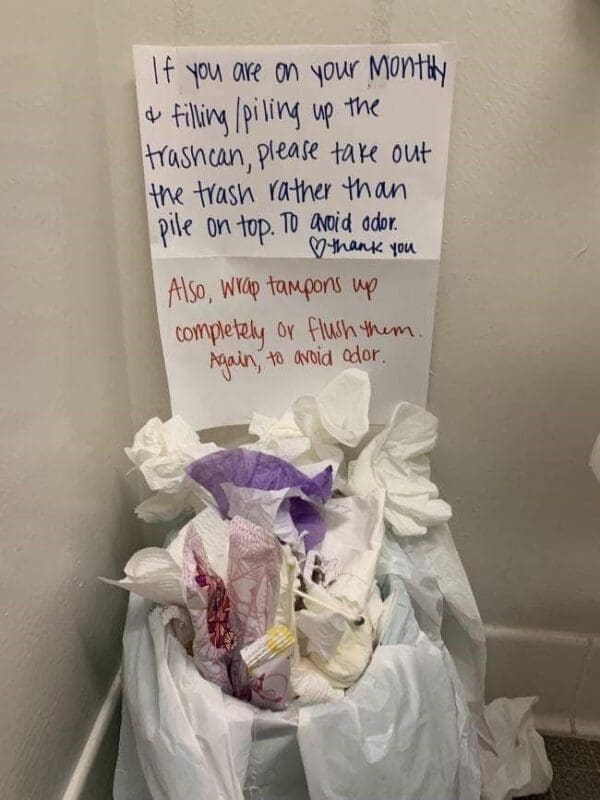 If you are on your Monthly
& filling/piling up the
trashcan, please take out
the trash rather than
pile on top. TO avoid odor.
♡thank you
Also, wrap tampons up
completely or flush them.
Again, to avoid odor.